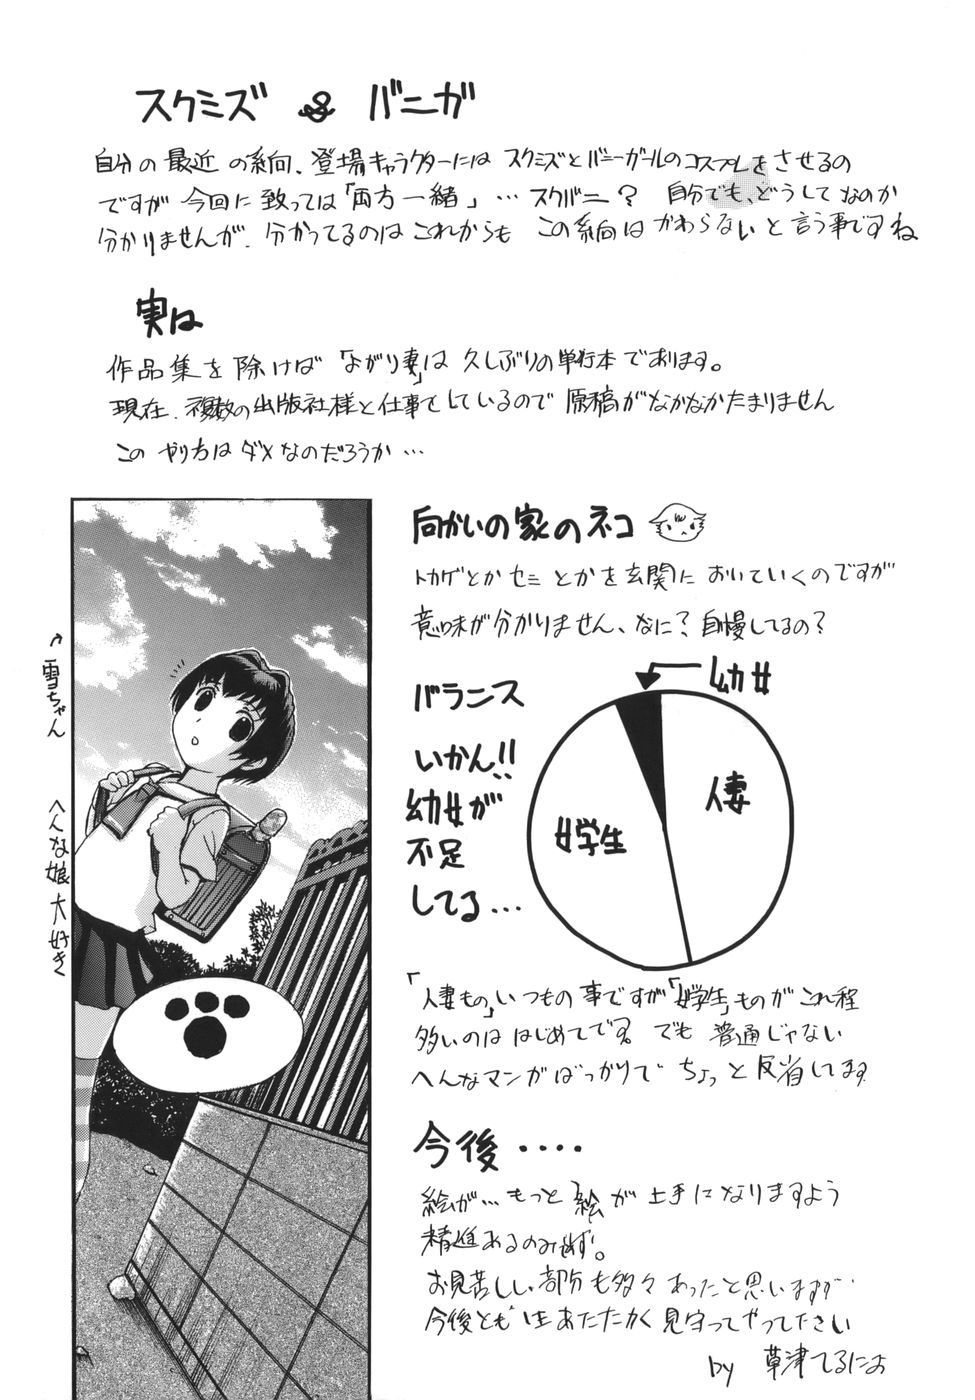 スクミズ & バニガ
自分の最近の系向、登場キャラクターには スクミズとバニーガールのコスプレをさせるの
ですが 今回に致っては「両方一緒」… スクバニ? 自分でも、どうしてなのか
分かりませんが、分かってるのは これからも この系向はかわらないと言う事ですね
実は
作品集を除けば「ながり妻」は 久しぶりの単行本であります。
現在、複数の出版社様と仕事をしているので 原稿がなかなかたまりません
この やり方はダメなのだろうか…
向かいの家のネコ
トカゲとか セミ とかを玄関に おいていくのですが
意味が分かりません、なに? 自慢してるの?
←雪ちゃん
へんな娘 大好き
バランス
いかん!!
幼女が
不足
してる…
幼女
人妻
女学生
「人妻もの」いつもの事ですが「女学生」ものがこれ程
多いのは はじめてです。でも 普通じゃない
へんなマンガばっかりで ちょっと反省してます
今後・・・・
絵が… もっと 絵が 上手になりますよう
精進あるのみです。
お見苦しい部分も多々あったと思いますが
今後とも 生あたたかく見守ってやって下さい
by 草津てるにょ